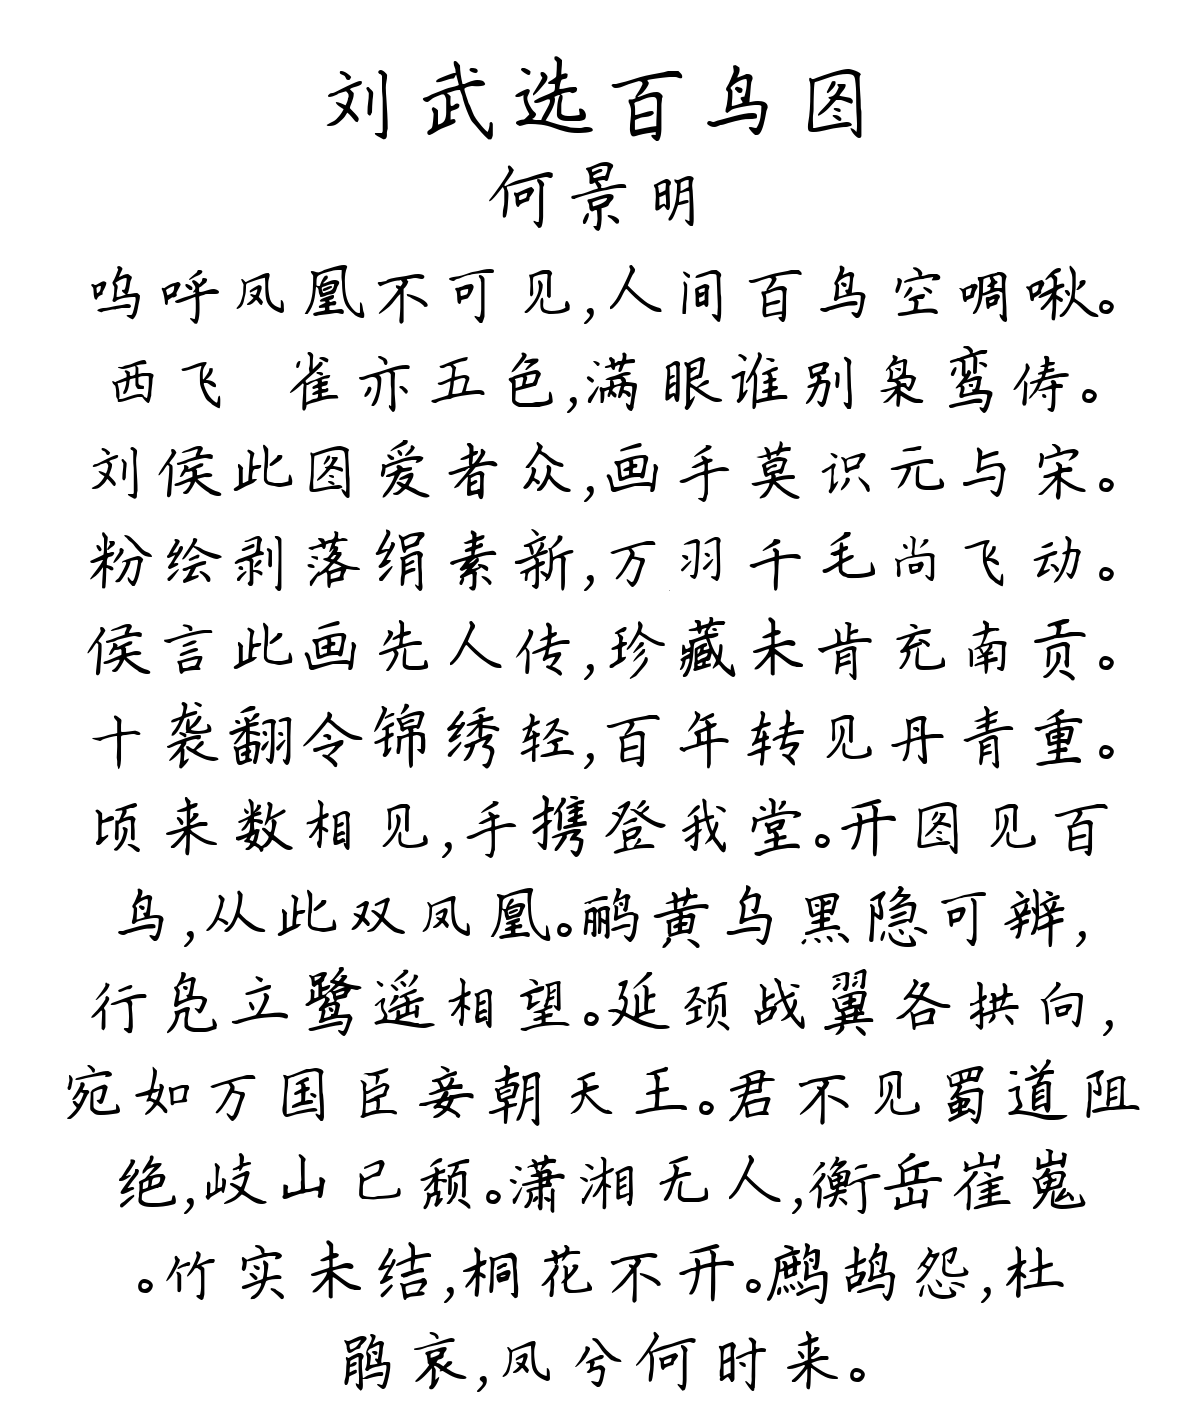 刘武选百鸟图
何景明
呜呼凤凰不可见,人间百鸟空啁啾。
西飞 雀亦五色,满眼谁别枭鸾俦。
刘侯此图爱者众,画手莫识元与宋。
粉绘剥落绢素新,万羽千毛尚飞动。
侯言此画先人传,珍藏未肯充南贡。
十袭翻令锦绣轻,百年转见丹青重。
顷来数相见,手携登我堂。开图见百
鸟,从此双凤凰。鹂黄乌黑隐可辨,
行凫立鹭遥相望。延颈战翼各拱向,
宛如万国臣妾朝天王。君不见蜀道阻
绝,岐山已颓。潇湘无人,衡岳崔嵬
。竹实未结,桐花不开。鹧鸪怨,杜
鹃哀,凤兮何时来。